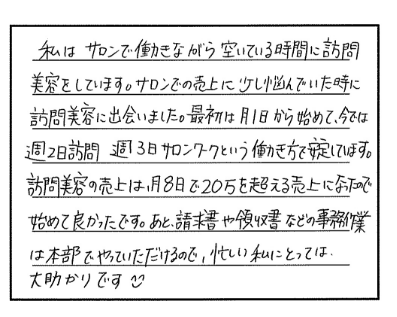 私は サロンで働きながら 空いている時間に訪問
美容をしています。サロンでの売上に少し悩んでいた時に
訪問美容に出会いました。最初は月1日から始めて、今では
週2日訪問 週3日サロンワークという働き方で安定しています。
訪問美容の売上は、月8日で20万を超える売上になったので
始めて良かったです。あと、請求書や領収書などの事務作業
は本部でやっていただけるので、忙しい私にとっては、
大助かりです